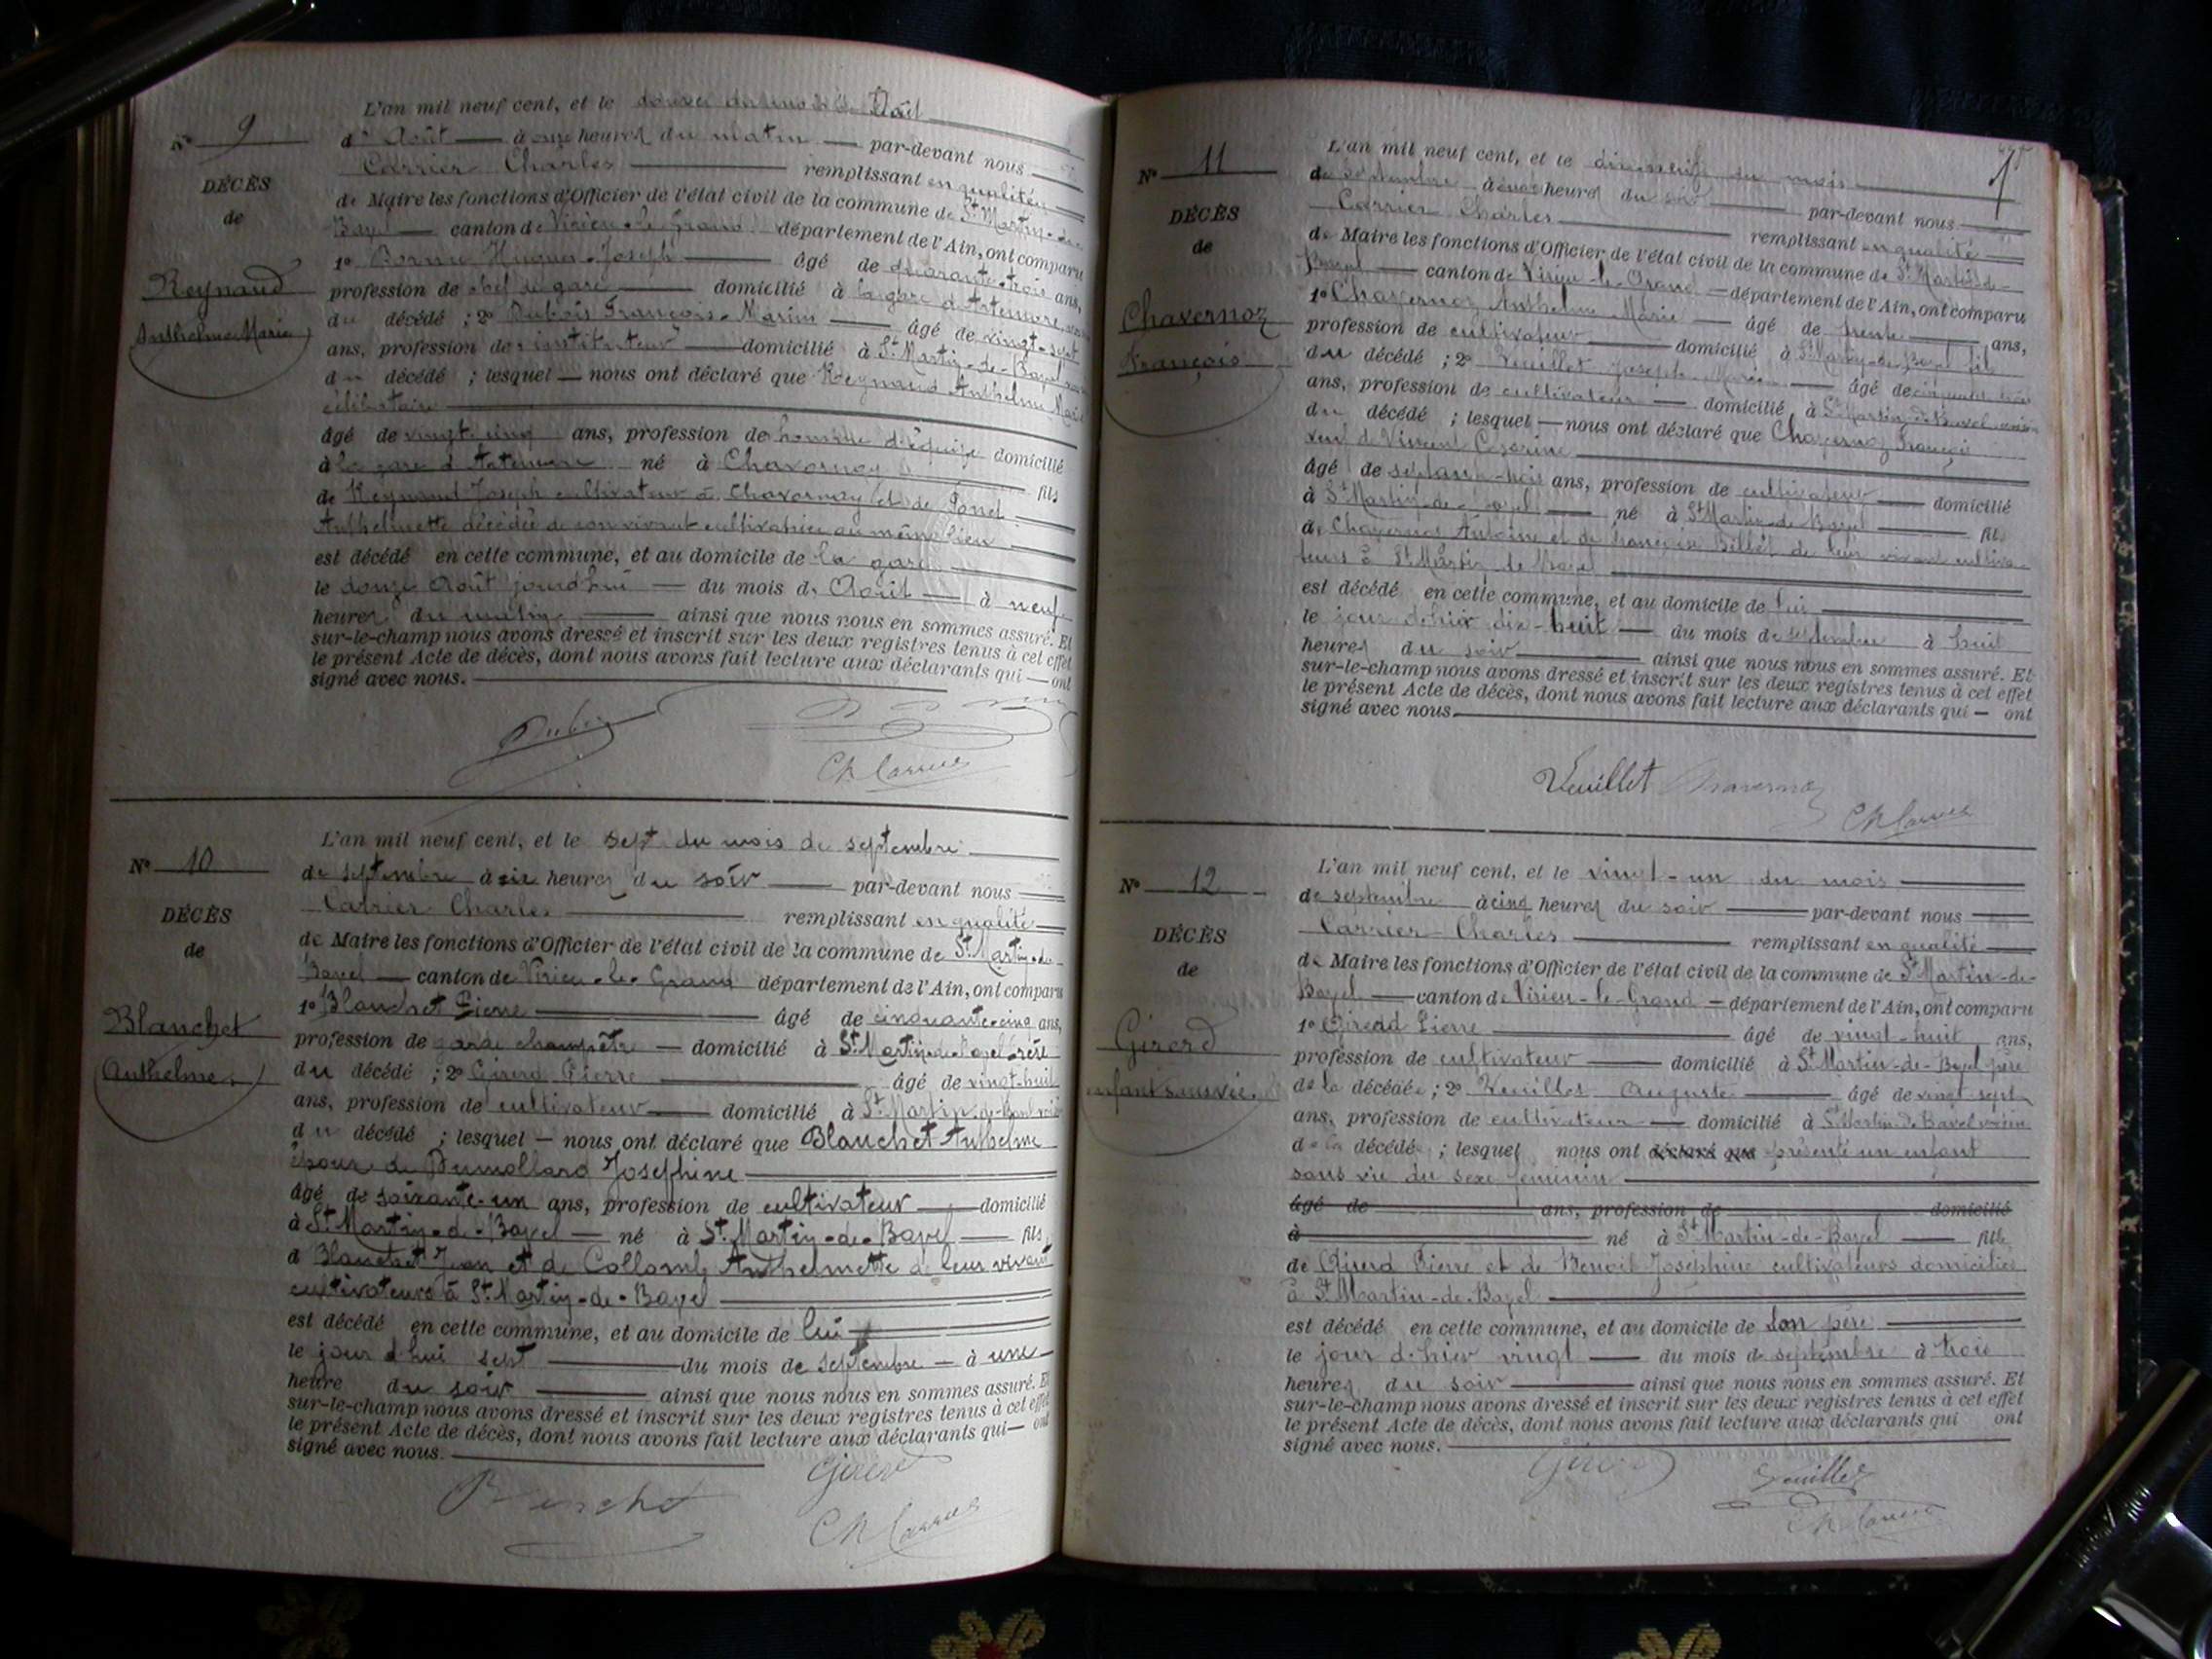 N° 9
DÉCÈS
de
Reynaud
Anthelme Marie
L'an mil neuf cent, et le douze du mois d' Août
d' Août — à onze heures du matin — par-devant nous
Carrier Charles — remplissant en qualité
de Maire les fonctions d'Officier de l'état civil de la commune de St Martin-de-
Bavel — canton de Virieu-le-Grand département de l'Ain, ont comparu
1° Hugues Joseph — âgé de quarante-trois ans,
profession de chef de gare — domicilié à la gare d'Artemare,
du décédé ; 2° Dubois François-Marius — âgé de vingt-sept
ans, profession de instituteur — domicilié à St Martin-de-Bavel
du décédé ; lesquel — nous ont déclaré que Reynaud Anthelme Marie
célibataire
âgé de vingt cinq ans, profession de homme d'équipe domicilié
à la gare d'Artemare né à Chavornay fils
de Reynaud Joseph cultivateur à Chavornay et de Ponet
Anthelmette décédée de son vivant cultivatrice au même lieu
est décédé en cette commune, et au domicile de la gare
le douze Août jourd'hui — du mois d' Août — à neuf
heures du matin — ainsi que nous nous en sommes assuré. Et
sur-le-champ nous avons dressé et inscrit sur les deux registres tenus à cet effet
le présent Acte de décès, dont nous avons fait lecture aux déclarants qui — ont
signé avec nous.
Dubois
Ch Carrier
N° 10
DÉCÈS
de
Blanchet
Anthelme
L'an mil neuf cent, et le sept du mois de septembre
de septembre à six heures du soir — par-devant nous
Carrier Charles — remplissant en qualité
de Maire les fonctions d'Officier de l'état civil de la commune de St Martin-de-
Bavel — canton de Virieu-le-Grand département de l'Ain, ont comparu
1° Blanchet Pierre — âgé de cinquante-cinq ans,
profession de garde champêtre — domicilié à St Martin-de-Bavel frère
du décédé ; 2° Girerd Pierre — âgé de vingt-huit
ans, profession de cultivateur — domicilié à St Martin-de-Bavel voisin
du décédé ; lesquel — nous ont déclaré que Blanchet Anthelme
époux de Dumollard Joséphine
âgé de soixante-un ans, profession de cultivateur — domicilié
à St Martin-de-Bavel — né à St Martin-de-Bavel — fils
d Blanchet Jean et de Collomb Anthelmette de leur vivant
cultivateurs à St Martin-de-Bavel
est décédé en cette commune, et au domicile de lui
le jour d'hui sept — du mois de septembre — à une
heure du soir — ainsi que nous nous en sommes assuré. Et
sur-le-champ nous avons dressé et inscrit sur les deux registres tenus à cet effet
le présent Acte de décès, dont nous avons fait lecture aux déclarants qui — ont
signé avec nous.
Blanchet
Girerd
Ch Carrier
N° 11
DÉCÈS
de
Chavernoz
François
L'an mil neuf cent, et le dix-neuf du mois
de septembre à heures du soir — par-devant nous
Carrier Charles — remplissant en qualité
de Maire les fonctions d'Officier de l'état civil de la commune de St Martin-de-
Bavel — canton de Virieu-le-Grand — département de l'Ain, ont comparu
1° Chavernoz Anthelme Marie — âgé de trente — ans,
profession de cultivateur — domicilié à St Martin-de-Bavel fils
du décédé ; 2° Veuillet Joseph Marie — âgé de cinquante trois
ans, profession de cultivateur — domicilié à St Martin-de-Bavel voisin
du décédé ; lesquel — nous ont déclaré que Chavernoz François
veuf de Vincent Césarine
âgé de septante-trois ans, profession de cultivateur — domicilié
à St Martin-de-Bavel — né à St Martin-de-Bavel — fils
de Chavernoz Antoine et de Françoise Billet de leur vivant cultiva-
teurs à St Martin de Bavel
est décédé en cette commune, et au domicile de lui
le jour d'hier dix-huit — du mois de septembre à huit
heures du soir — ainsi que nous nous en sommes assuré. Et
sur-le-champ nous avons dressé et inscrit sur les deux registres tenus à cet effet
le présent Acte de décès, dont nous avons fait lecture aux déclarants qui — ont
signé avec nous.
Veuillet Chavernoz
Ch Carrier
N° 12
DÉCÈS
de
Girerd
enfant sans vie
L'an mil neuf cent, et le vingt-un du mois
de septembre à cinq heures du soir — par-devant nous
Carrier Charles — remplissant en qualité
de Maire les fonctions d'Officier de l'état civil de la commune de St Martin-de-
Bavel — canton de Virieu-le-Grand — département de l'Ain, ont comparu
1° Girerd Pierre — âgé de vingt-huit ans,
profession de cultivateur — domicilié à St Martin-de-Bavel père
de la décédée ; 2° Veuillet Auguste — âgé de vingt-sept
ans, profession de cultivateur — domicilié à St Martin-de-Bavel voisin
de la décédé ; lesquel nous ont déclaré que présenté un enfant
sans vie du sexe féminin
âgé de ans, profession de domicilié
à né à St Martin-de-Bavel — fils
de Girerd Pierre et de Benoit Joséphine cultivateurs domiciliés
à St Martin-de-Bavel
est décédé en cette commune, et au domicile de son père
le jour d'hier vingt — du mois de septembre à trois
heures du soir — ainsi que nous nous en sommes assuré. Et
sur-le-champ nous avons dressé et inscrit sur les deux registres tenus à cet effet
le présent Acte de décès, dont nous avons fait lecture aux déclarants qui ont
signé avec nous.
Girerd
Veuillet
Ch Carrier